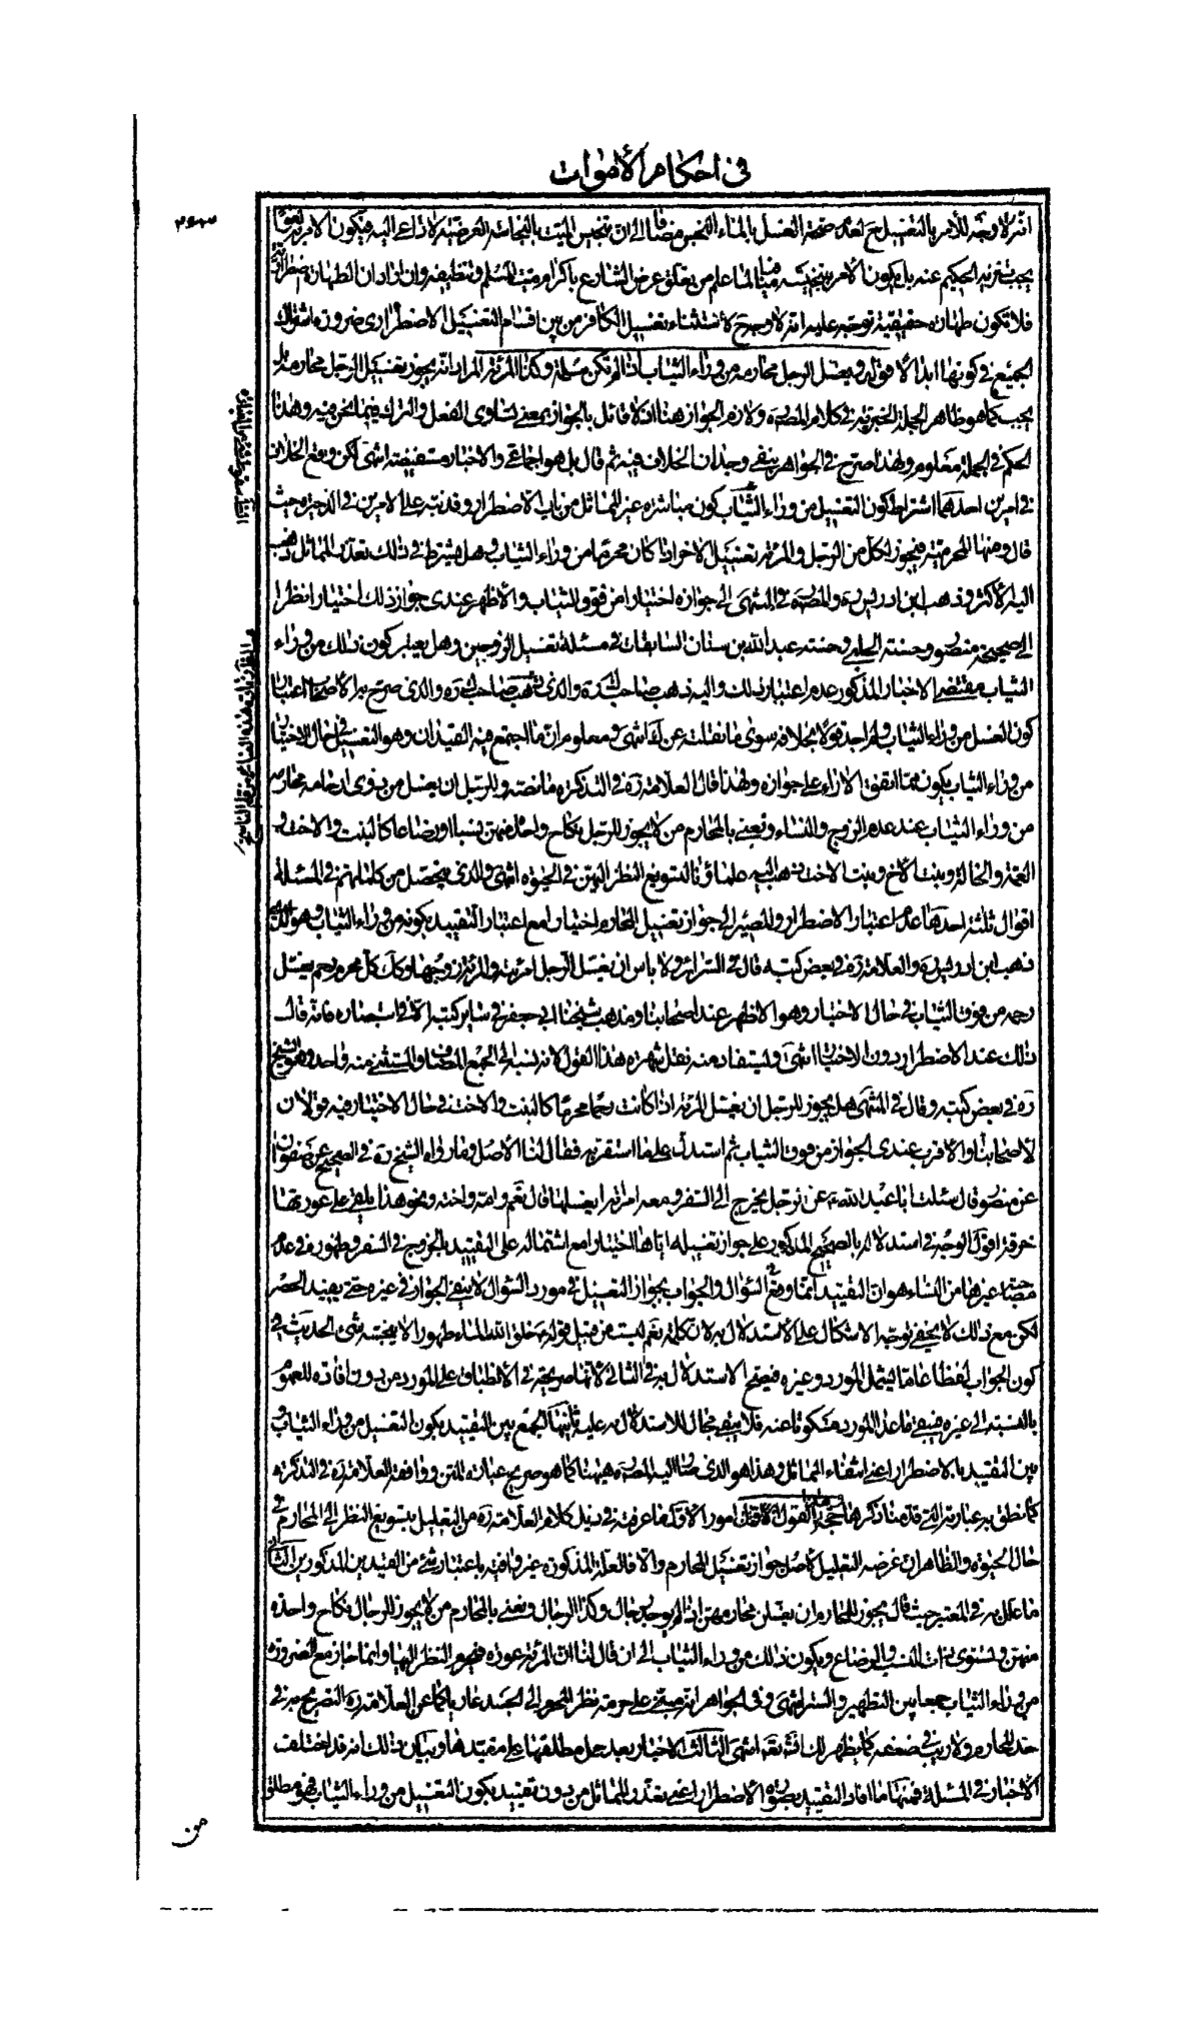 في احكام الأموات
انه لا وجه للأمر بالتغسيل ح لعدم صحة الغسل بالماء النجس مضافا الى ان تنجس الميت بالنجاسة العرضية لا داعي اليه فيكون الامر به لغوا
يجب تنزيه الحكيم عنه بل يكون الامر بتنجيسه منافيا لما علم من تعلق غرض الشارع باكرام ميت المسلم وتنظيفه وان اراد ان الطهارة اضطرارية
فلا تكون طهارة حقيقية توجه عليه انه لا وجه ح لاستثناء تغسيل الكافر من بين اقسام التغسيل الاضطراري ضرورة اشتراك
الجميع في كونها ابدالا قوله ويغسل الرجل محارمه من وراء الثياب اذا لم تكن مسلمة وكذا المرئة المراد انه يجوز تغسيل الرجل محارمه بل
يجب كما هو ظاهر الجملة الخبرية في كلام المصره ولازم الجواز هنا اذ لا قائل بالجواز بمعنى تساوى الفعل والترك فيما نحن فيه وهذا
الحكم في الجملة معلوم ولهذا صرح في الجواهر بنفى وجدان الخلاف فيه ثم قال بل هو اجماعي والاخبار مستفيضة انتهى لكن وقع الخلاف
في امرين احدهما اشتراط كون التغسيل من وراء الثياب كون مباشرة غير المماثل من باب الاضطرار وقد نبه على الامرين في الذخيرة حيث
قال ومنها المحرمية فيجوز لكل من الرجل والمرئة تغسيل الاخر اذا كان محرما من وراء الثياب وهل يشترط في ذلك تعذر المماثل ذهب
اليه الأكثر وذهب ابن ادريس ره والمصره في المنتهى الى جوازه اختيارا من فوق الثياب والأظهر عندى جواز ذلك اختيارا نظرا
الى صحيحة منصور وحسنة الحلبي وحسنة عبد الله بن سنان السابقات في مسئلة تغسيل الزوجين وهل يعتبر كون ذلك من وراء
الثياب مقتضى الاخبار المذكور عدم اعتبار ذلك واليه ذهب صاحب المدارك ره والذى صرح به الاصحاب اعتبار
كون الغسل من وراء الثياب ولم اجد قولا بخلافه سوى ما نقلت عن ك انتهى ومعلوم ان ما اجتمع فيه القيدان وهو التغسيل في حال الاختيار
من وراء الثياب يكون مما اتفق الاراء على جوازه ولهذا قال العلامة ره في التذكرة ما نصه وللرجل ان يغسل من ذوى ارحامه محارمه
من وراء الثياب عند عدم الزوج والنساء ونعنى بالمحارم من لا يجوز للرجل نكاح واحدة منهن نسبا او رضاعا كالبنت والاخت و
العمة والخالة وبنت الأخ وبنت الاخت ذهب اليه علماؤنا لتسويغ النظر اليهن في الحيوة انتهى والذى يتحصل من كلماتهم في المسئلة
اقوال ثلثة احدها عدم اعتبار الاضطرار والمصير الى جواز تغسيل المحارم اختيارا مع اعتبار التقييد بكونه من وراء الثياب وهو الذى
ذهب ابن ادريس ره والعلامة ره في بعض كتبه قال في السرائر ولا باس ان يغسل الرجل امرئته والمرئة زوجها وكك كل محرم رحم يغسل
رحمه من فوق الثياب في حال الاختيار وهو الاظهر عند اصحابنا ومذهب شيخنا ابى جعفر في ساير كتبه الا في استبصاره فانه قال
ذلك عند الاضطرار دون الاختيار انتهى ويستفاد منه نقل شهرة هذا القول لانه نسبه الى الجمع المضاف والمستثنى منه واحد وهو الشيخ
ره في بعض كتبه وقال في المنتهى هل يجوز للرجل ان يغسل المرئة اذا كانت رحما محرما كالبنت والاخت في حال الاختيار فيه قولان
لاصحابنا والاقرب عندى الجواز من فوق الثياب ثم استدل على ما استقر به فقال لنا الأصل وما رواه الشيخ ره في الصحيح عن صفوان
عن منصور قال سئلت ابا عبد الله ع عن الرجل يخرج الى السفر ومعه امراته ايغسلها قال نعم وامه واخته ونحو هذا يلقى على عورتها
خرقة اقول الوجه في استدلاله بالصحيح المذكور على جواز تغسيله اياها اختيارا مع اشتماله على التقييد بالخروج في السفر وظهوره في عدم
مصاحبة غيرها من النساء هو ان التقييد انما وقع في السؤال والجواب بجواز التغسيل في مورد السؤال لا ينفى الجواز في غيره حتى يفيد الحصر
لكن مع ذلك لا يخفى توجه الاشكال على الاستدلال به لان كلمة نعم ليست من قبيل قوله خلق الله الماء طهورا لا ينجسه شئ الحديث في
كون الجواب لفظا عاما ليشمل المورد وغيره فيصح الاستدلال به في الثاني لانها صريحة في الانطباق على المورد من دون افادة للعموم
بالنسبة الى غيره فيبقى ما عدا المورد مسكوتا عنه فلا يبقى مجال للاستدلال به عليه ثانيها الجمع بين التقييد بكون التغسيل من وراء الثياب و
بين التقييد بالاضطرار اعنى انتفاء المماثل وهذا هو الذى صار اليه المصره هيهنا كما هو صريح عبارة المتن ووافقه العلامة ره في التذكرة
كما نطق به عبارته التي قدمنا ذكرها حجة هذا القول امور الأول ما عرفته في ذيل كلام العلامة ره من التعليل بتسويغ النظر الى المحارم في
حال الحيوة والظاهر ان غرضه التعليل لاصل جواز تغسيل المحارم والا فالعلة المذكورة غير وافية باعتبار شئ من القيدين المذكورين الثاني
ما علل به في المعتبر حيث قال يجوز للمحارم ان يغسلن محارمهن اذا لم يوجد رجال وكذا الرجال ونعنى بالمحارم من لا يجوز للرجال نكاح واحدة
منهن ويستوى ذات النسب والرضاع ويكون ذلك من وراء الثياب الى ان قال لنا ان المرئة عورة فيحرم النظر اليها وانما جاز مع الضرورة
من وراء الثياب جمعا بين التطهير والستر انتهى وفي الجواهر انه مبنى على حرمة نظر المحرم الى الجسد عاريا كما عن العلامة ره التصريح به في
حد المحارم ولا ريب في ضعفه كما يظهر لك انش تعه انتهى الثالث الاخبار بعد حمل مطلقها على مقيدها وبيان ذلك انه قد اختلف
الأخبار في المسئلة فمنها ما افاد التقييد بصورة الاضطرار اعنى تعذر المماثل من دون تقييد بكون التغسيل من وراء الثياب فهو مطلق
من